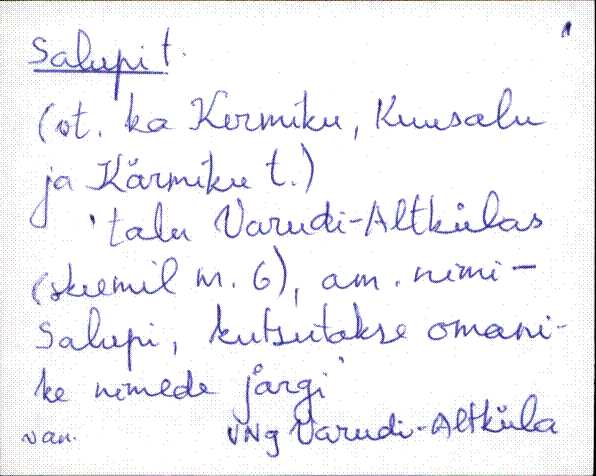 Salupi t.
(vt. ka Kermiku, Kuusalu
ja Kärmiku t.)
'talu Varudi-Altkülas
(skeemil nr. 6), am. nimi -
Salupi, kutsutakse omani-
ke nimede järgi'
van. VNg Varudi-Altküla